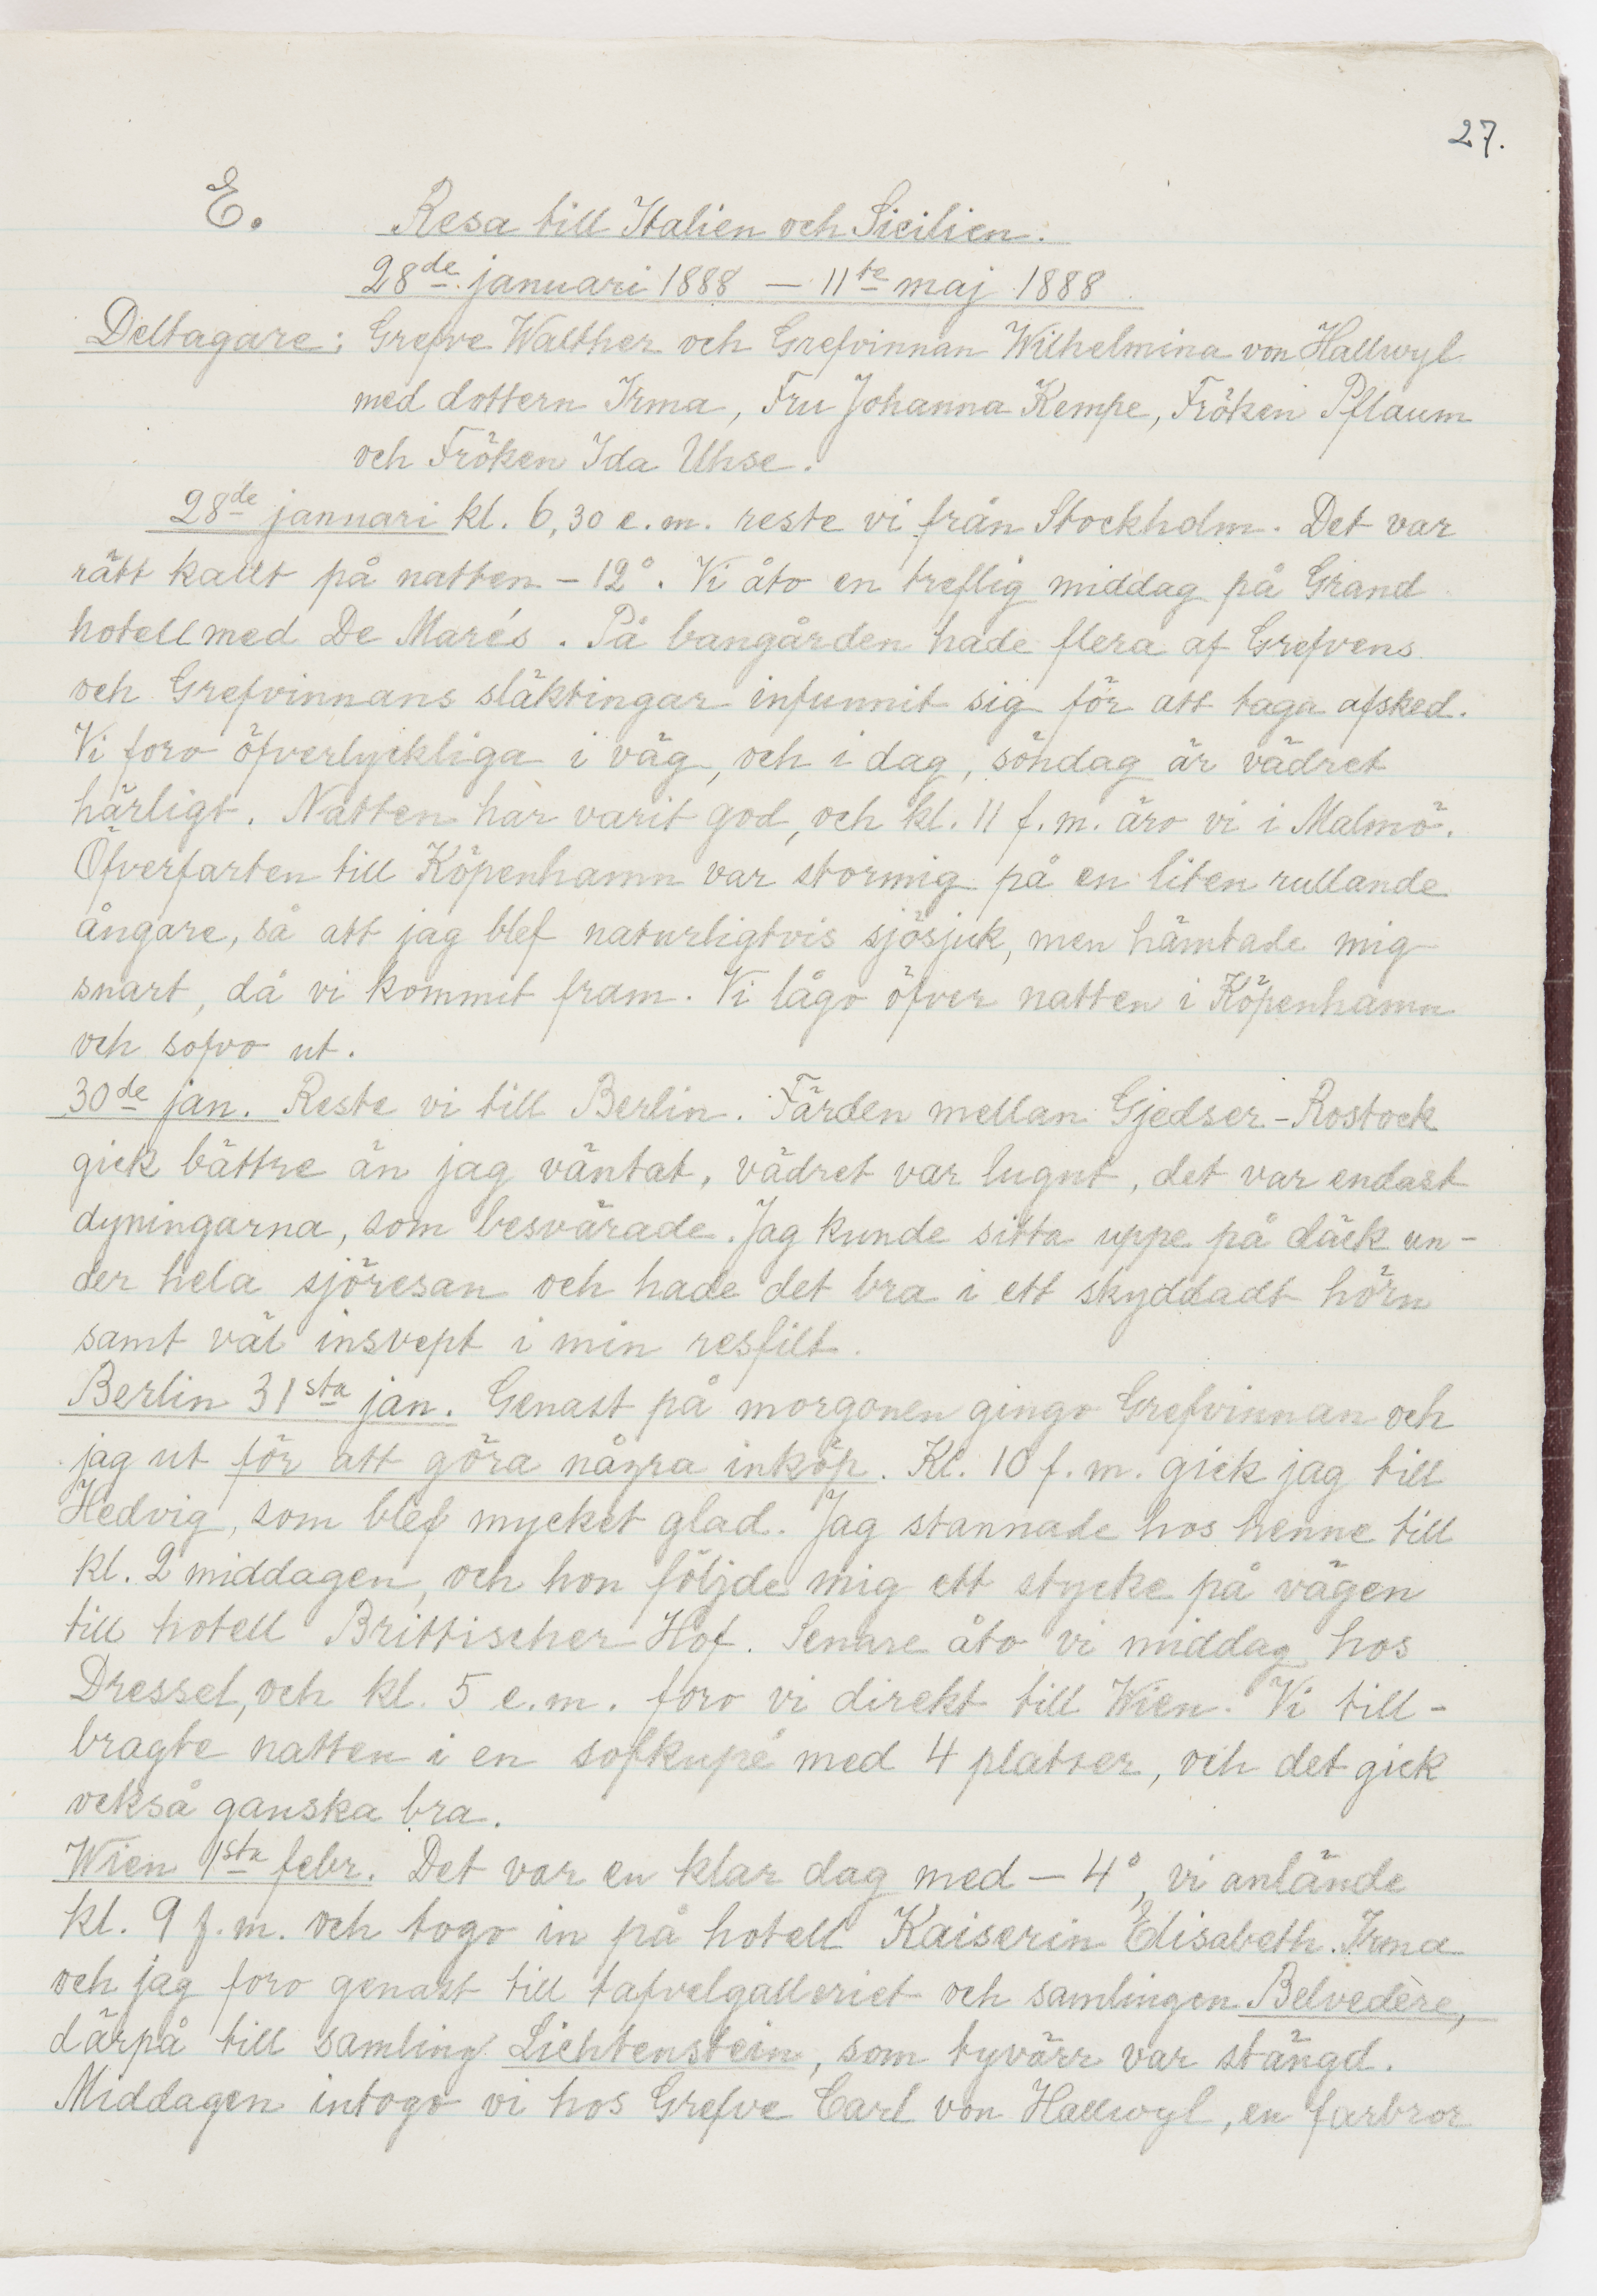 27.
E. Resa till Italien och Sicilien.
28de januari 1888 — 11te maj 1888
Deltagare: Grefve Walther och Grefvinnan Wilhelmina von Hallwyl
med dottern Irma, Fru Johanna Kempe, Fröken Pflaum
och Fröken Ida Uhse.
28de januari kl. 6,30 e.m. reste vi från Stockholm. Det var
rätt kallt på natten – 12°. Vi åto en treflig middag på Grand
hotell med De Marés. På bangården hade flera af Grefvens
och Grefvinnans släktingar infunnit sig för att taga afsked.
Vi foro öfverlyckliga i väg, och i dag, söndag är vädret
härligt. Natten har varit god, och kl. 11 f.m. äro vi i Malmö.
Öfverfarten till Köpenhamn var stormig på en liten rullande
ångare, så att jag blef naturligtvis sjösjuk, men hämtade mig
snart, då vi kommit fram. Vi lågo öfver natten i Köpenhamn
och sofvo ut.
30de jan. Reste vi till Berlin. Färden mellan Gjedser-Rostock
gick bättre än jag väntat, vädret var lugnt, det var endast
dyningarna, som besvärade. Jag kunde sitta uppe på däck un-
der hela sjöresan och hade det bra i ett skyddadt hörn
samt väl insvept i min resfilt.
Berlin 31sta jan. Genast på morgonen gingo Grefvinnan och
jag ut för att göra några inköp. Kl. 10 f.m. gick jag till
Hedvig, som blef mycket glad. Jag stannade hos henne till
kl. 2 middagen, och hon följde mig ett stycke på vägen
till hotell Brittischer Hof. Senare åto vi middag hos
Dressel, och kl. 5 e.m. foro vi direkt till Wien. Vi till-
bragte natten i en sofkupé med 4 platser, och det gick
också ganska bra.
Wien 1sta febr. Det var en klar dag med – 4°, vi anlände
kl. 9 f.m. och togo in på hotell Kaiserin Elisabeth. Irma
och jag foro genast till tafvelgalleriet och samlingen Belvedère,
därpå till samling Lichtenstein, som tyvärr var stängd.
Middagen intogo vi hos Grefve Carl von Hallwyl, en farbror